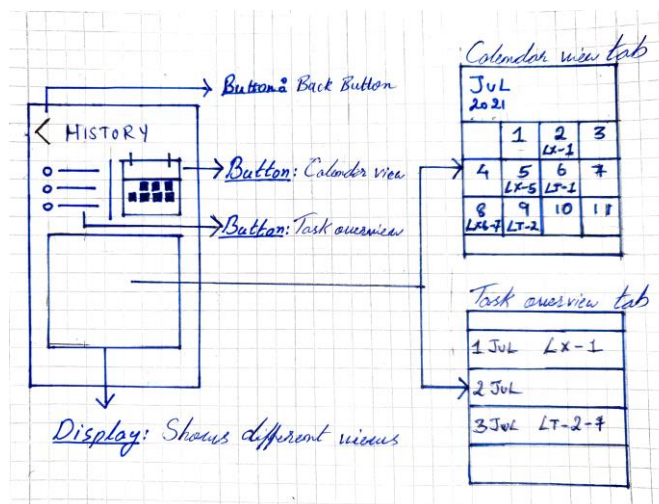 Button: Back Button
< HISTORY
Button: Calender view
Button: Task overview
Display: Shows different views
Calendar view tab
JUL
2021
1 2 3
LX-1
4 5 6 7
LX-5 LT-1
8 9 10 11
LX6-7 LT-2
Task overview tab
1 JUL LX-1
2 JUL
3 JUL LT-2-7